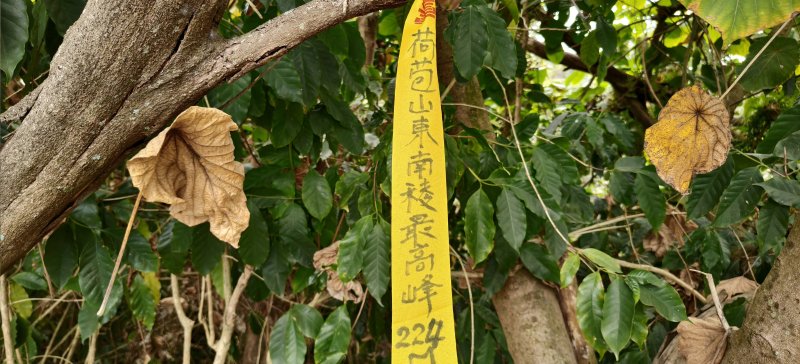 荷苞山東南稜最高峰
224
M